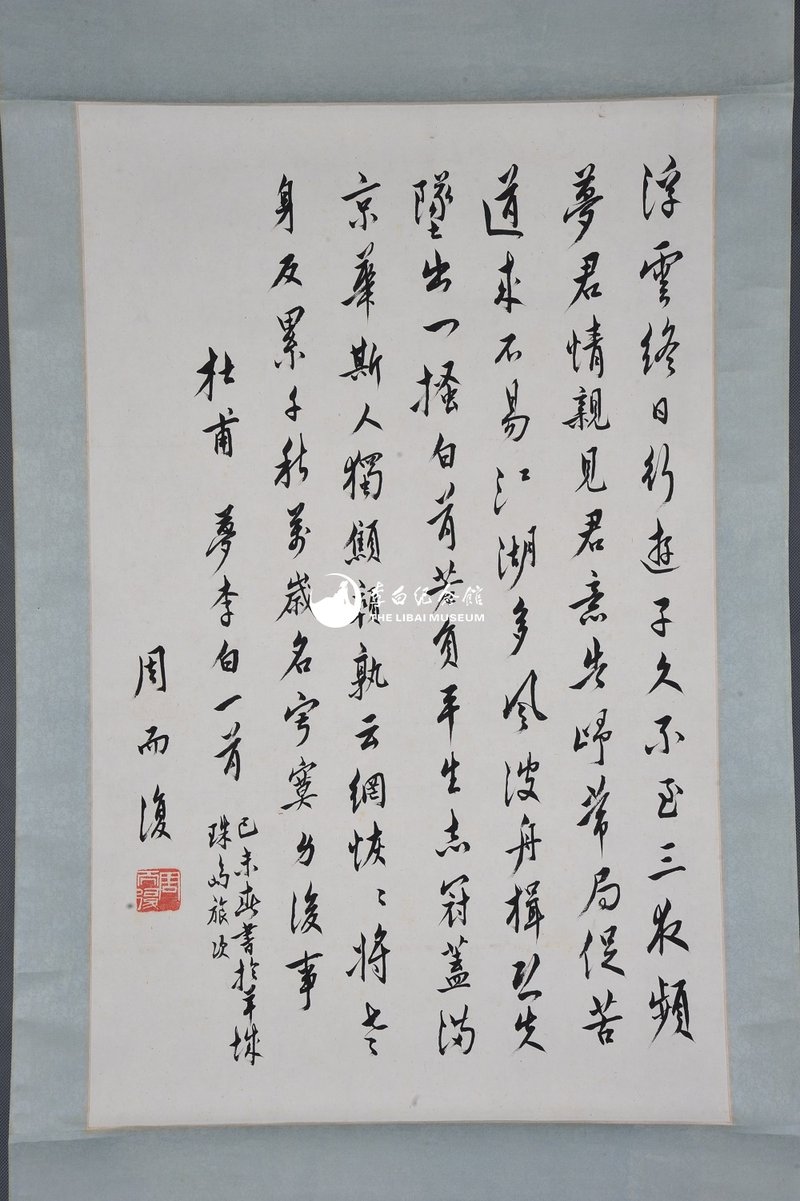 浮雲終日行遊子久不至三夜頻
夢君情親見君意告歸常局促苦
道來不易江湖多風波舟楫恐失
墜出門搔白首若負平生志冠蓋滿
京華斯人獨顦顇孰云網恢〻將老
身反累千秋萬歲名寂寞身後事
杜甫 夢李白一首
己未春書於羊城
珠島旅次
周而復
周而復
李白纪念馆
THE LIBAI MUSEUM